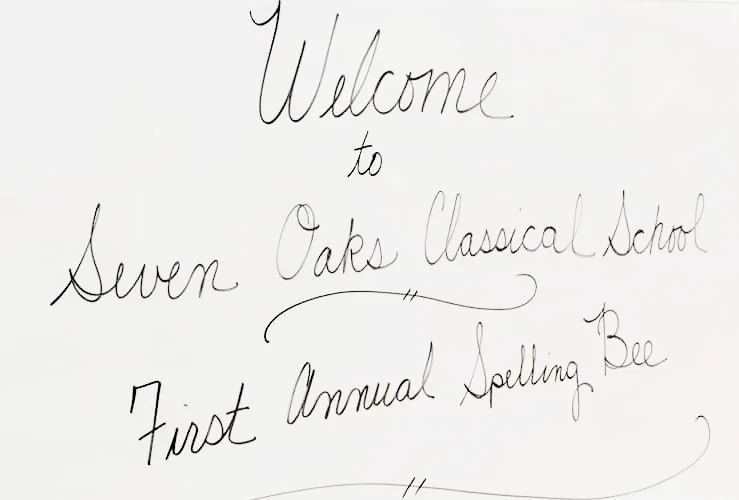 Welcome
to
Seven Oaks Classical School
First Annual Spelling Bee